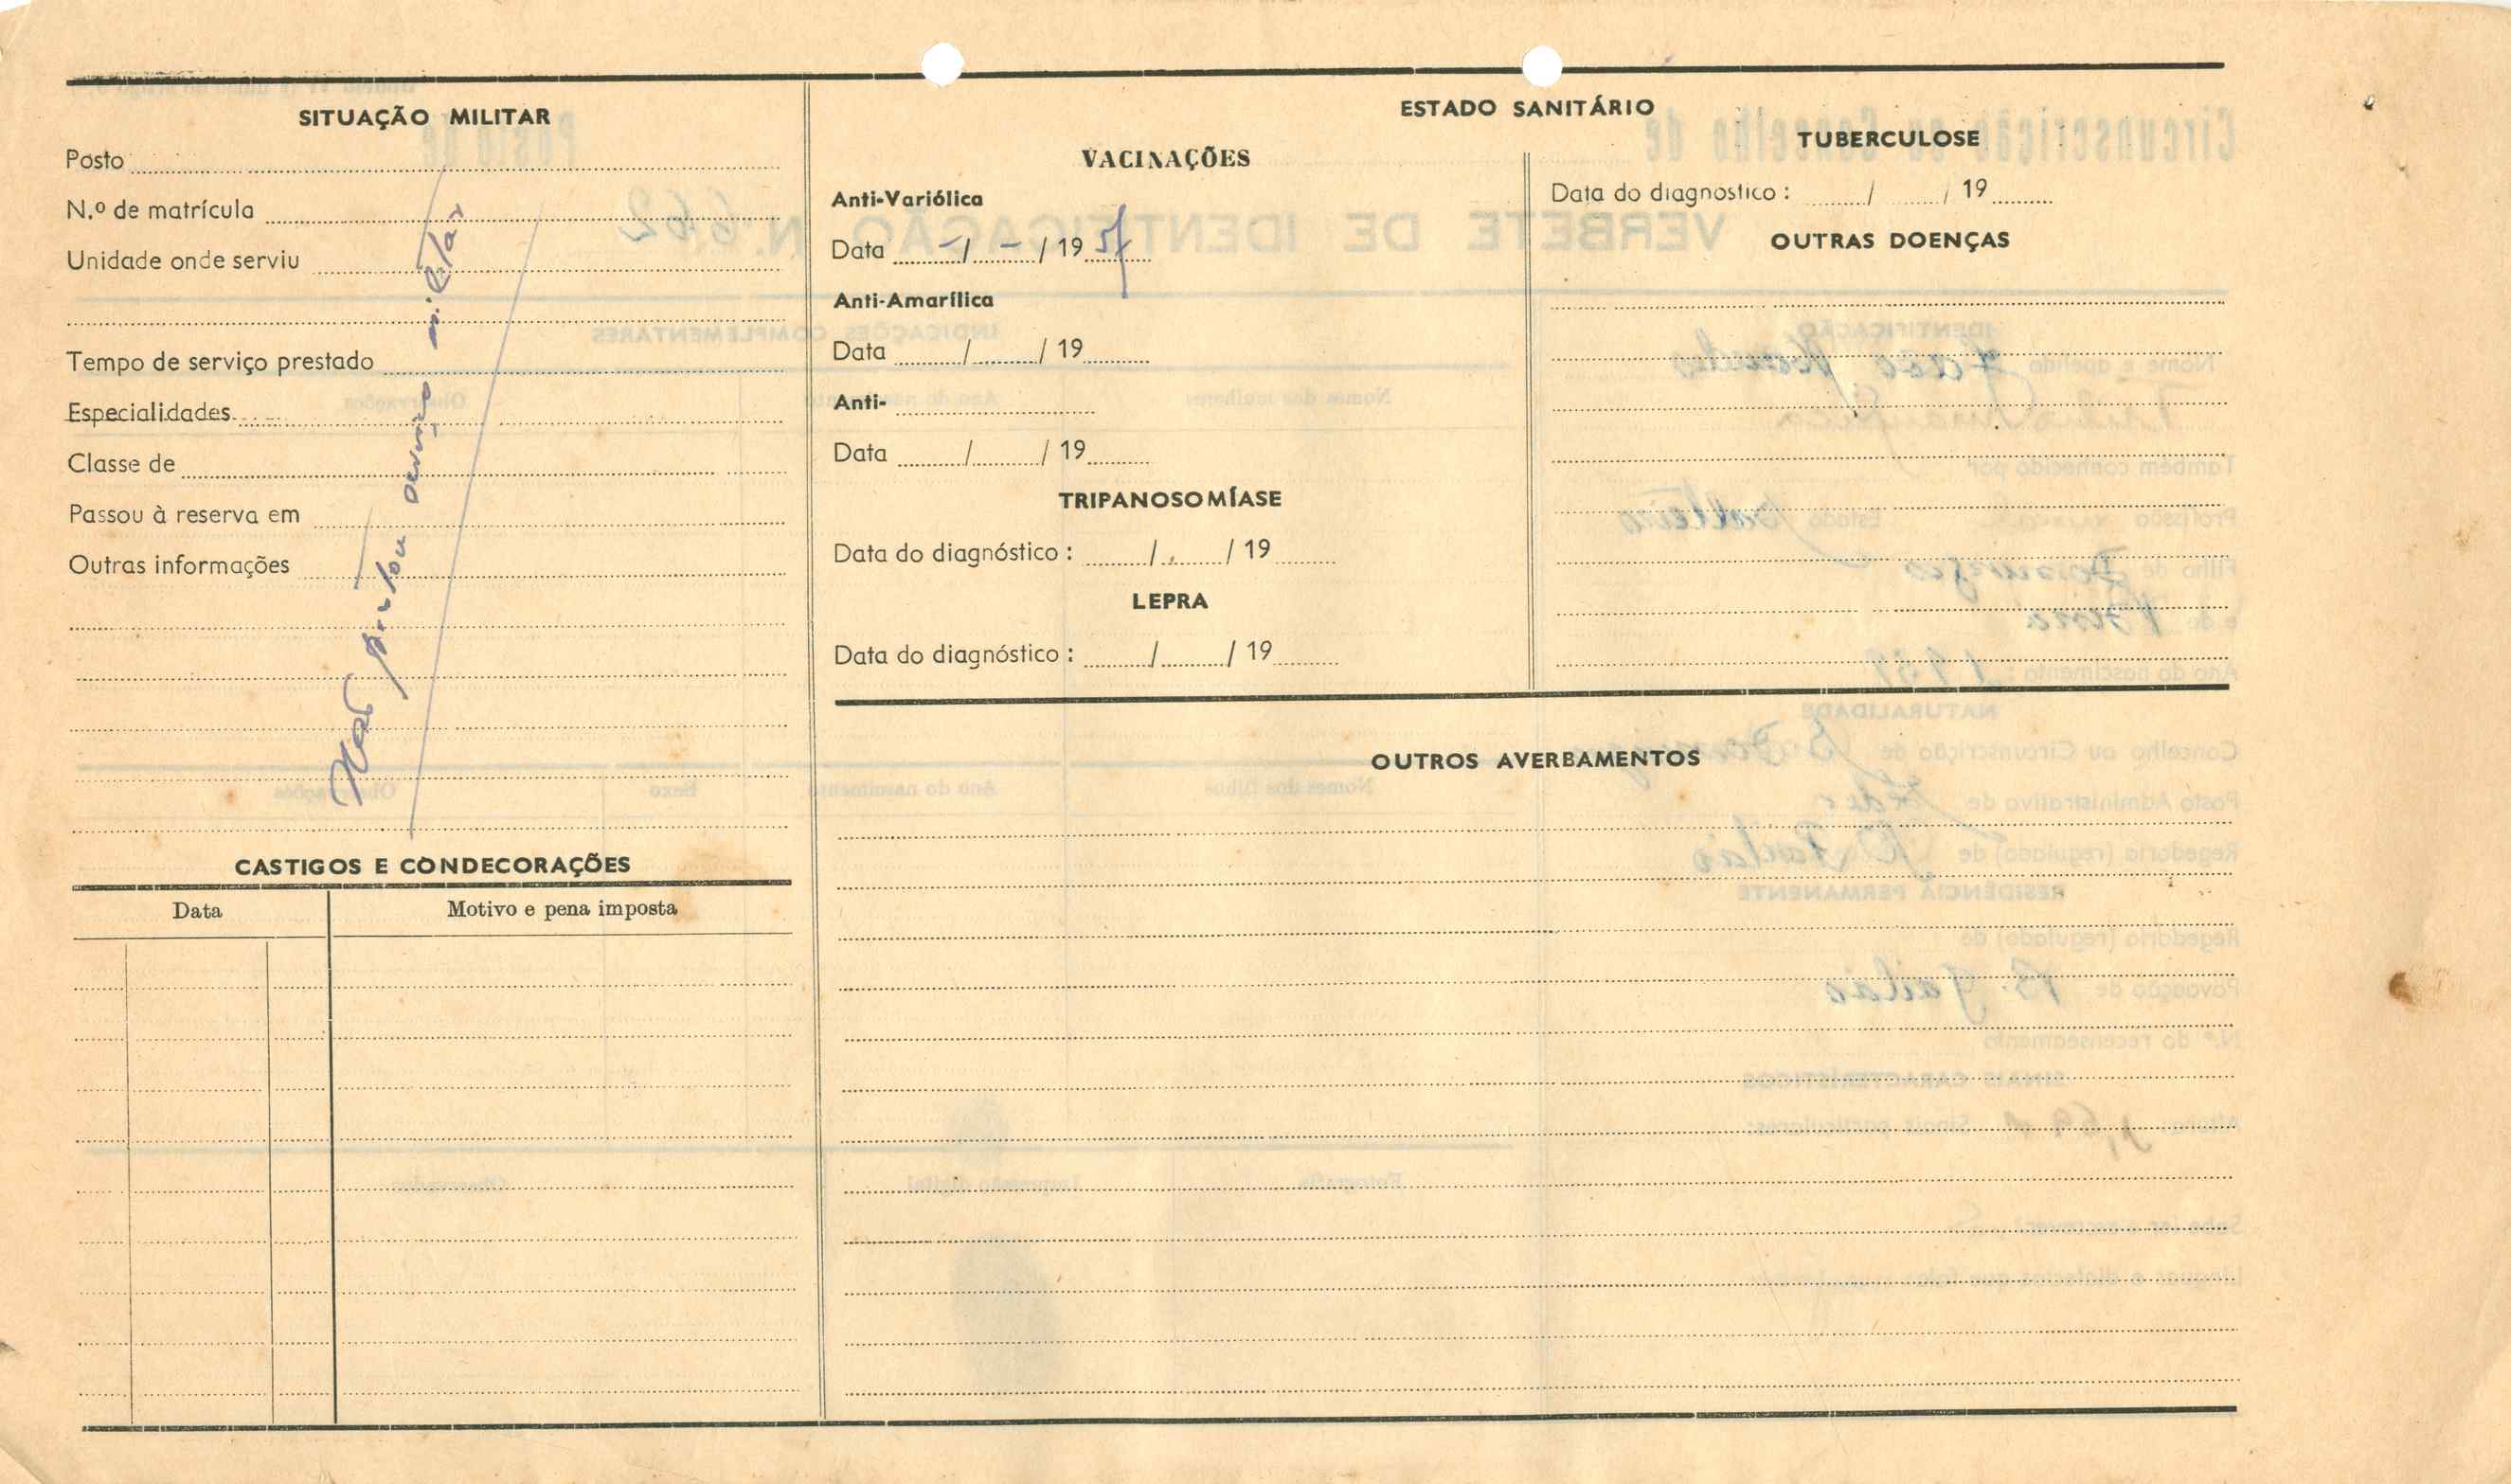 SITUAÇÃO MILITAR
Posto
N.º de matrícula
Unidade onde serviu
Tempo de serviço prestado
Especialidades
Classe de
Passou à reserva em
Outras informações
Não prestou serviço militar
CASTIGOS E CONDECORAÇÕES
Data Motivo e pena imposta
ESTADO SANITÁRIO
VACINAÇÕES
Anti-Variólica
Data - / - / 19
Anti-Amarílica
Data / / 19
Anti-
Data / / 19
TRIPANOSOMÍASE
Data do diagnóstico : / / 19
LEPRA
Data do diagnóstico : / / 19
TUBERCULOSE
Data do diagnostico : / / 19
OUTRAS DOENÇAS
OUTROS AVERBAMENTOS